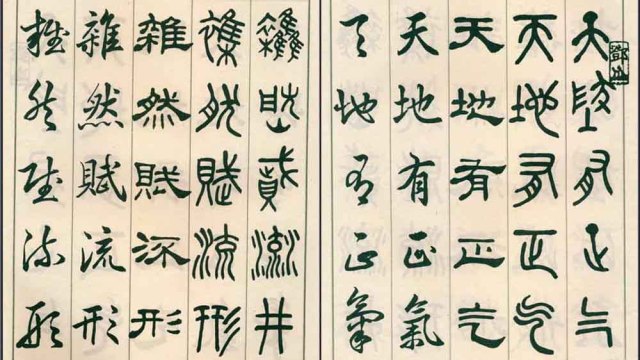 天地有正气
天地有正气
天地有正气
天地有正氣
天地有正氣
雜然賦流井
雜然賦流形
雜然賦流形
雜然賦流形
雜然賦流形